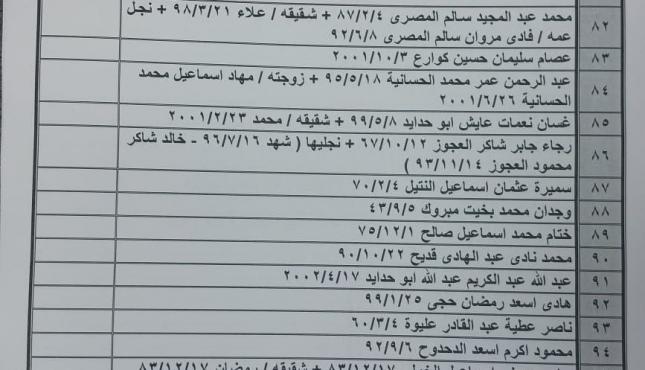 ٨٢ محمد عبد المجيد سالم المصرى ٨٧/٢/٤ + شقيقه / علاء ٩٨/٣/٢١ + نجل
عمه / فادى مروان سالم المصرى ٩٢/٦/٨
٨٣ عصام سليمان حسين كوارع ٢٠٠١/١٠/٣
٨٤ عبد الرحمن عمر محمد الحسانية ٩٥/٥/١٨ + زوجته / مهاد اسماعيل محمد
الحسانية ٢٠٠١/٦/٢٦
٨٥ غسان نعمات عايش ابو حدايد ٩٩/٥/٨ + شقيقه / محمد ٢٠٠١/٢/٢٣
٨٦ رجاء جابر شاكر العجوز ٦٧/١٠/١٢ + نجليها ( شهد ٩٦/٧/١٦ - خالد شاكر
محمود العجوز ٩٣/١١/١٤ )
٨٧ سميرة عثمان اسماعيل النتيل ٧٠/٢/٤
٨٨ وجدان محمد بخيت مبروك ٤٣/٩/٥
٨٩ ختام محمد اسماعيل صالح ٧٥/١٢/١
٩٠ محمد نادى عبد الهادى قديح ٩٠/١٠/٢٢
٩١ عبد الله عبد الكريم عبد الله ابو حدايد ٢٠٠٢/٤/١٧
٩٢ هادى اسعد رمضان حجى ٩٩/١/٢٥
٩٣ ناصر عطية عبد القادر عليوة ٦٠/٣/٤
٩٤ محمود اكرم اسعد الدحدوح ٩٢/٩/٦
٨٣/١٢/١٧ + شقيقه / رمضان ٨٣/١٢/١٧